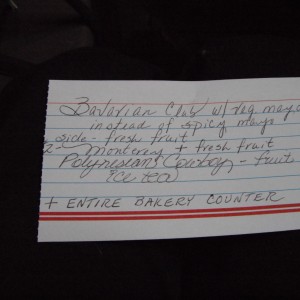 Bavarian Club w/ reg. mayo
instead of spicy mayo
side - fresh fruit
2 - Monterey + fresh fruit
Polynesian Cowboy - fruit
ice tea
+ ENTIRE BAKERY COUNTER